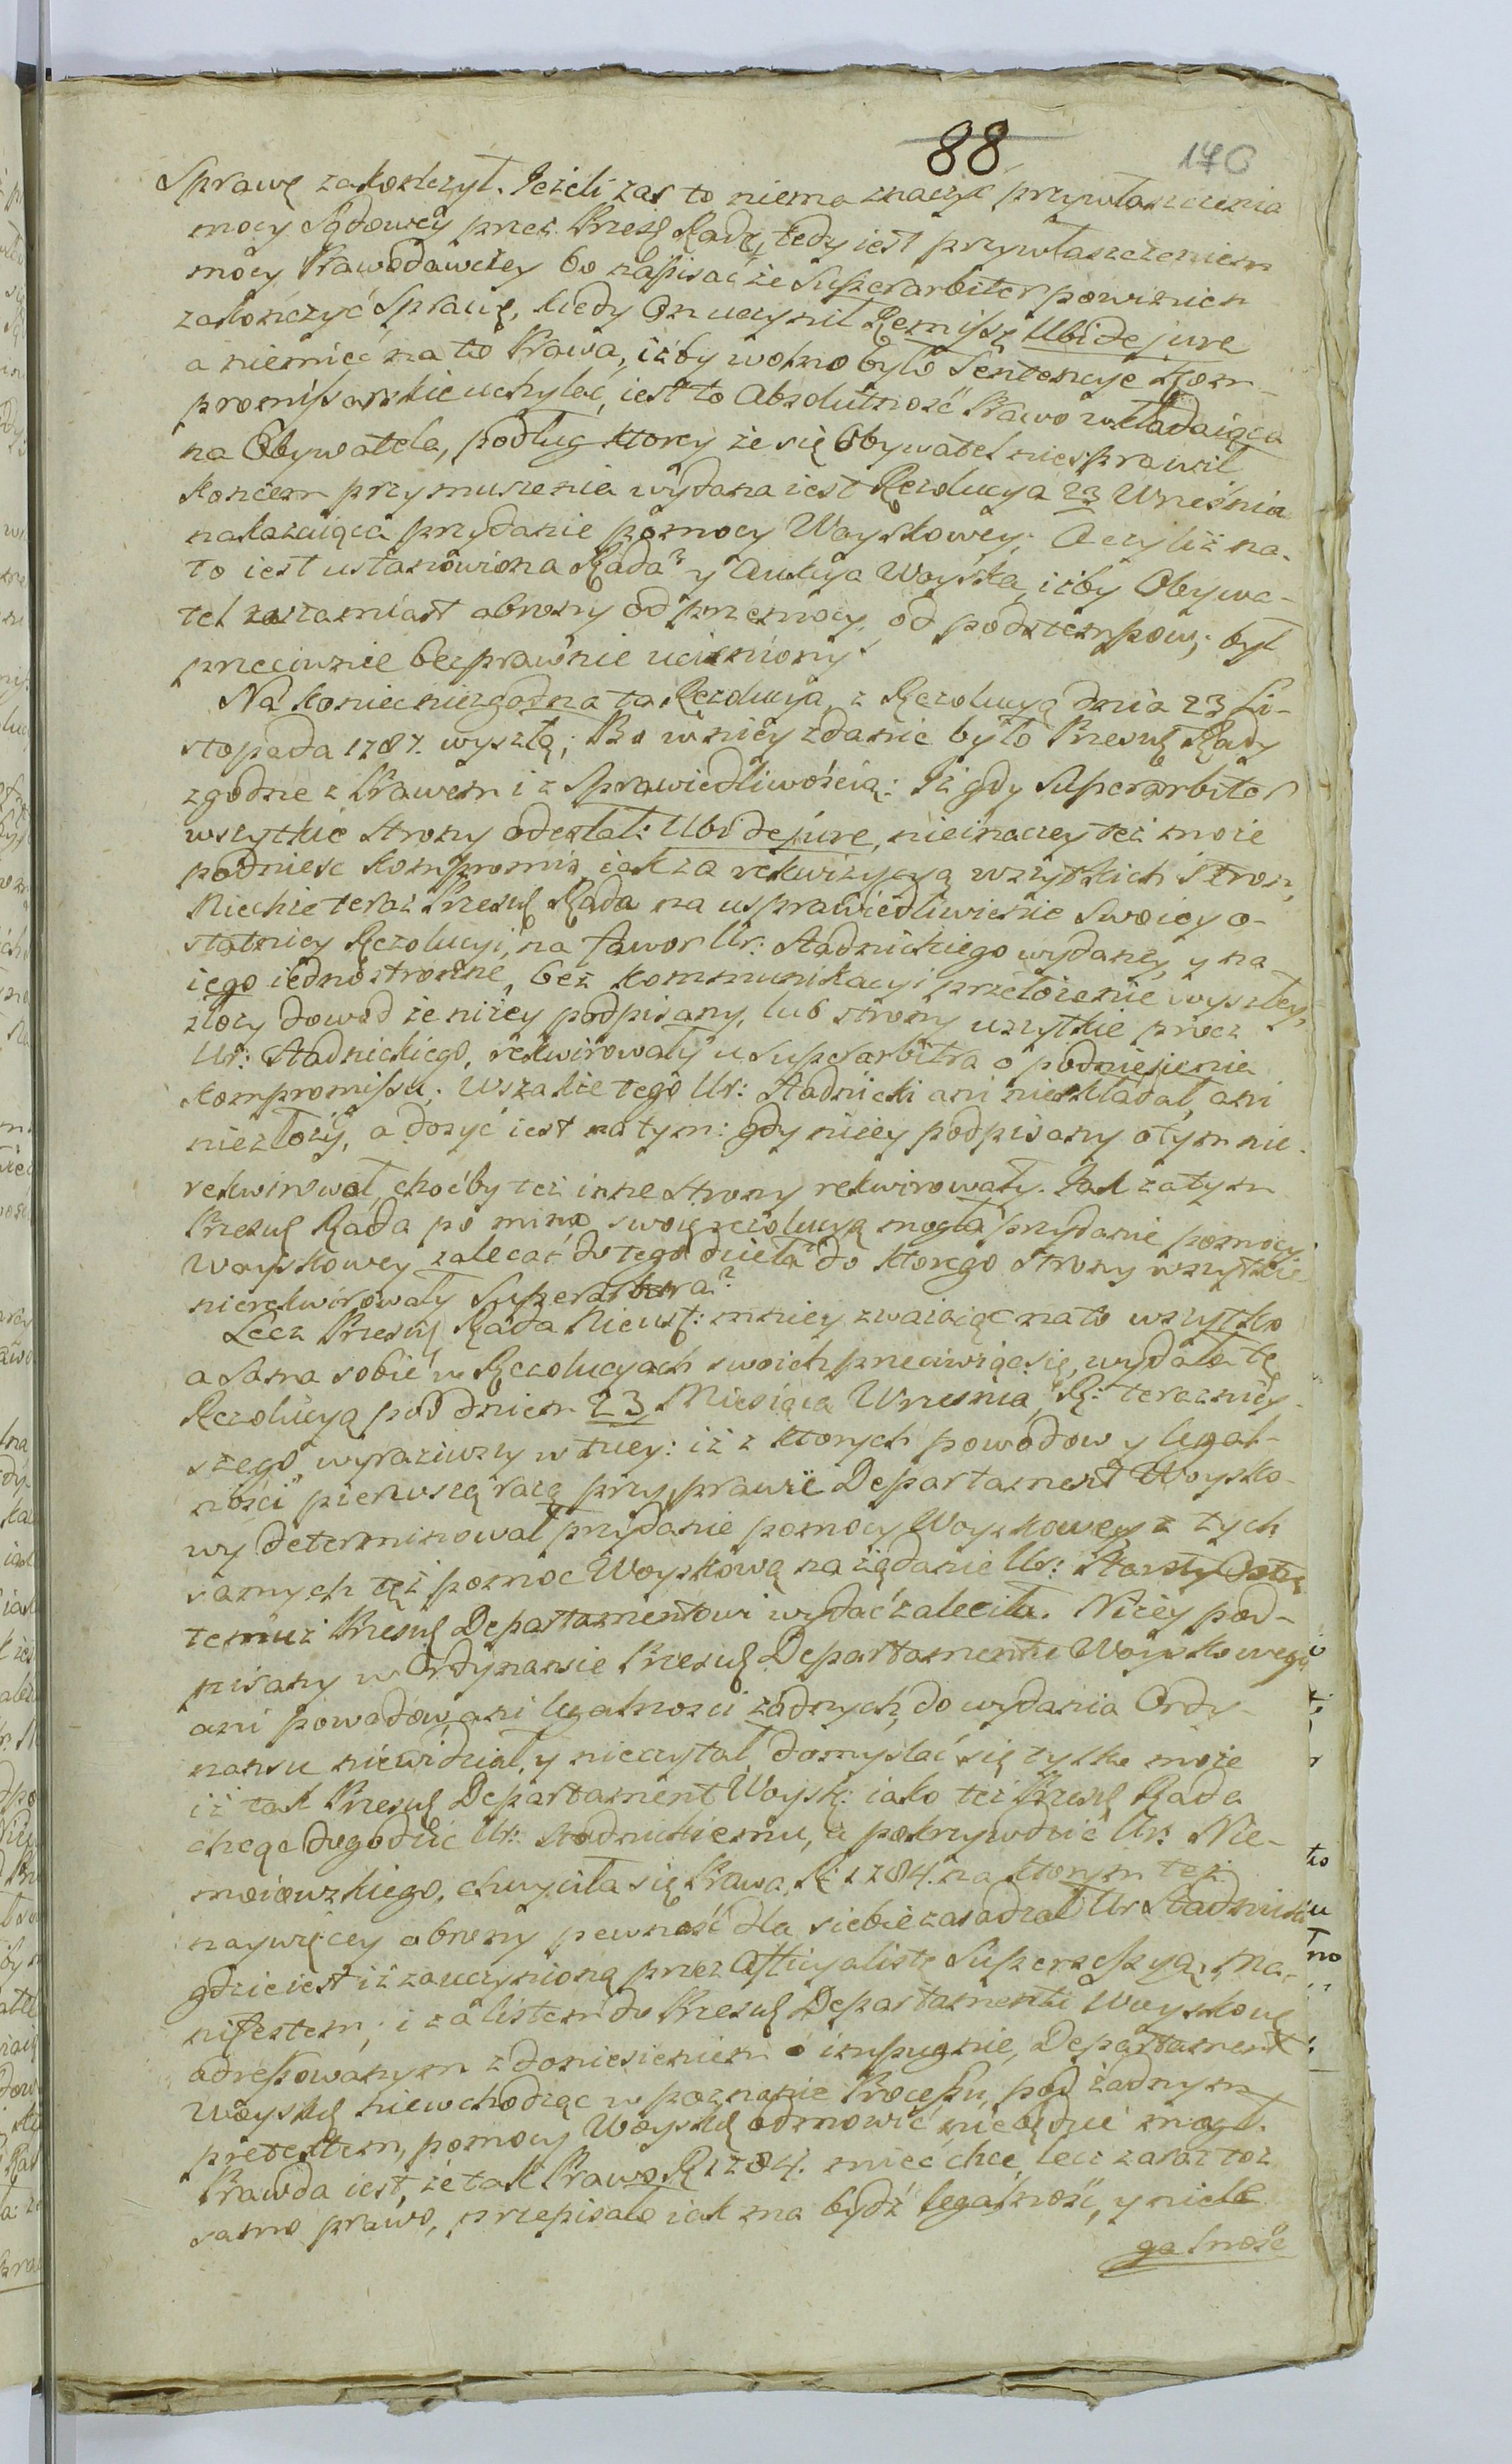 88 170
Sprawę zakończył. Jeżeli zas to niema znaczyć przywłaszczenia
mocy Sądowey przez Przeswę Radę, tedy iest przywłaszczeniem
mocy Prawodawczey bo napisać że Superarbiter powinien
zakończyć Sprawę, kiedy On uczynił Remissę Ubi de jure
a niemieć na to Prawa, iżby wolno było Sentencye Kom-
promissarskie uchylać, iest to Absolutność Prawo wkładaiąca
na Obywatela, podług ktorey że się Obywatel niesprawił
koncem przymuszenia wydana iest Rezolucya 23 Września
nakazuiąca przydanie pomocy Woyskowey; A czyliż na-
to iest ustanowiona Rada? y Aukcya Woyska, iżby Obywa-
tel zazamiast obrony od przemocy, od podstempow; był
przeciwnie bezprawnie uciemiony?
Na koniec niezgodna ta Rezolucya, z Rezolucyą dnia 23 Li-
stopada 1787. wyszłą; Bo w niey zdanie było Przeswę Rady
zgodne z Prawem i z Sprawiedliwością: Iż gdy Superarbiter
wszytkie strony odesłał: Ubi de jure, nieinaczey też może
podniesc kompromis, iak za rekwizycyą wszytkich stron,
Niechże teraz Przeswę Rada na usprawiedliwienie swoiey o-
statniey Rezolucyi, na fawor Ur: Stadnickiego wydaney, y na
iego iednostronne, bez kommunikacyi przełożenie wyszłey,
złoży dowod że niżey podpisany, lub strony wszytkie procz
Ur: Stadnickiego, rekwirowały u Superarbitra o podniesienie
kompromissu; Wszakże tego Ur: Stadnicki ani nieskładał, ani
niezłoży, a dosyć iest na tym: gdy niżey podpisany o tym nie-
rekwirował, choćby też inne strony rekwirowały. Jak zatym
Przeswę Rada po mimo swoię rezolucyą mogła przydanie pomocy
Woyskowey zalecać do tego dzieła do ktorego strony wszytkie
nierekwirowały Superarbitra?
Lecz Przeswę Rada Nieust: mniey zważaiąc na to wszytko
a sama sobie w Rezolucyach swoich przeciwiąc się, wydała tę
Rezolucyą pod dniem 23 Miesiąca Wrzesnia, R: terazniey-
szego wyraziwszy w niey: iż z ktorych powodow y legal-
ności pierwszą razą przyprawie Departament Woysko-
wy determinował przydanie pomocy Woyskowey z tych
samych też pomoc Woyskową na żądanie Ur: Starsty Ostrz
temuż Przeswę Departamentowi wydać zaleciła. Niżey pod-
pisany w Ordynansie Przeswę Departamentu Woyskowego
ani powodow, ani legalności żadnych, do wydania Ordy-
nansu niewidział, y nieczytał, domyslać się tylko może
iż tak Przeswę Departament Woysk: iako też Przeswę Rada
chcąc dogodzić Ur: Stadnickiemu, a pokrzywdzić Ur: Nie-
moiowskiego, chwyciła się Prawa R: 1784. na ktorym też
naywięcey obrony pewność dla siebie zasadzał Ur Stadnicki
gdzie iest iż za uczynioną przez Officyalistę Supersessyą, Ma-
nifestem, i za listem do Przeswę Departamentu Woyskowę
adressowanym z doniesieniem o impugnie, Departament
Woyskę niewchodząc w poznanie Processu, pod żadnym
pretextem, pomocy Woyskę odmowić niebędzie mogł.
Prawda iest, że tak Prawo R 1784. mieć chce, lecz zaraz toż
samo prawo, przepisało iak ma bydź legalność, y niele
galność